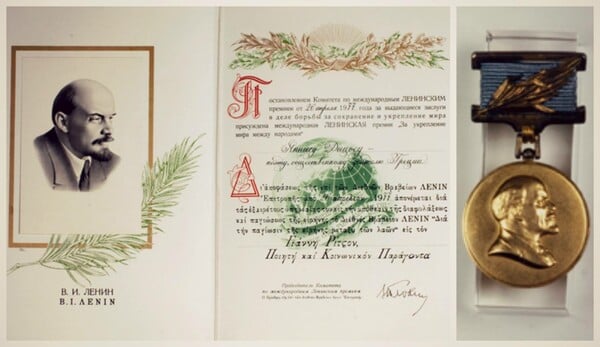 В. И. ЛЕНИН
В. I. ΛΕΝΙΝ
Постановлением Комитета по международным ЛЕНИНСКИМ
премиям от 26 апреля 1977 года за выдающиеся заслуги
в деле борьбы за сохранение и укрепление мира
присуждена международная ЛЕНИНСКАЯ премия "За укрепление
мира между народами"
Яннису Рицосу
поэту, общественному деятелю Греции
Ἐπιτροπῆς 1977 ἀπονέμεται διά
τάς ἐξαιρέτους
καί παγιώσεως τῆς εἰρήνης τό Διεθνές Βραβεῖον ΛΕΝΙΝ "Διά
τήν παγίωσιν τῆς εἰρήνης μεταξύ τῶν λαῶν" εἰς τόν
Γιάννη Ρίτσον,
Ποιητή καί Κοινωνικόν Παράγοντα
Председатель Комитета
по международным Ленинским премиям